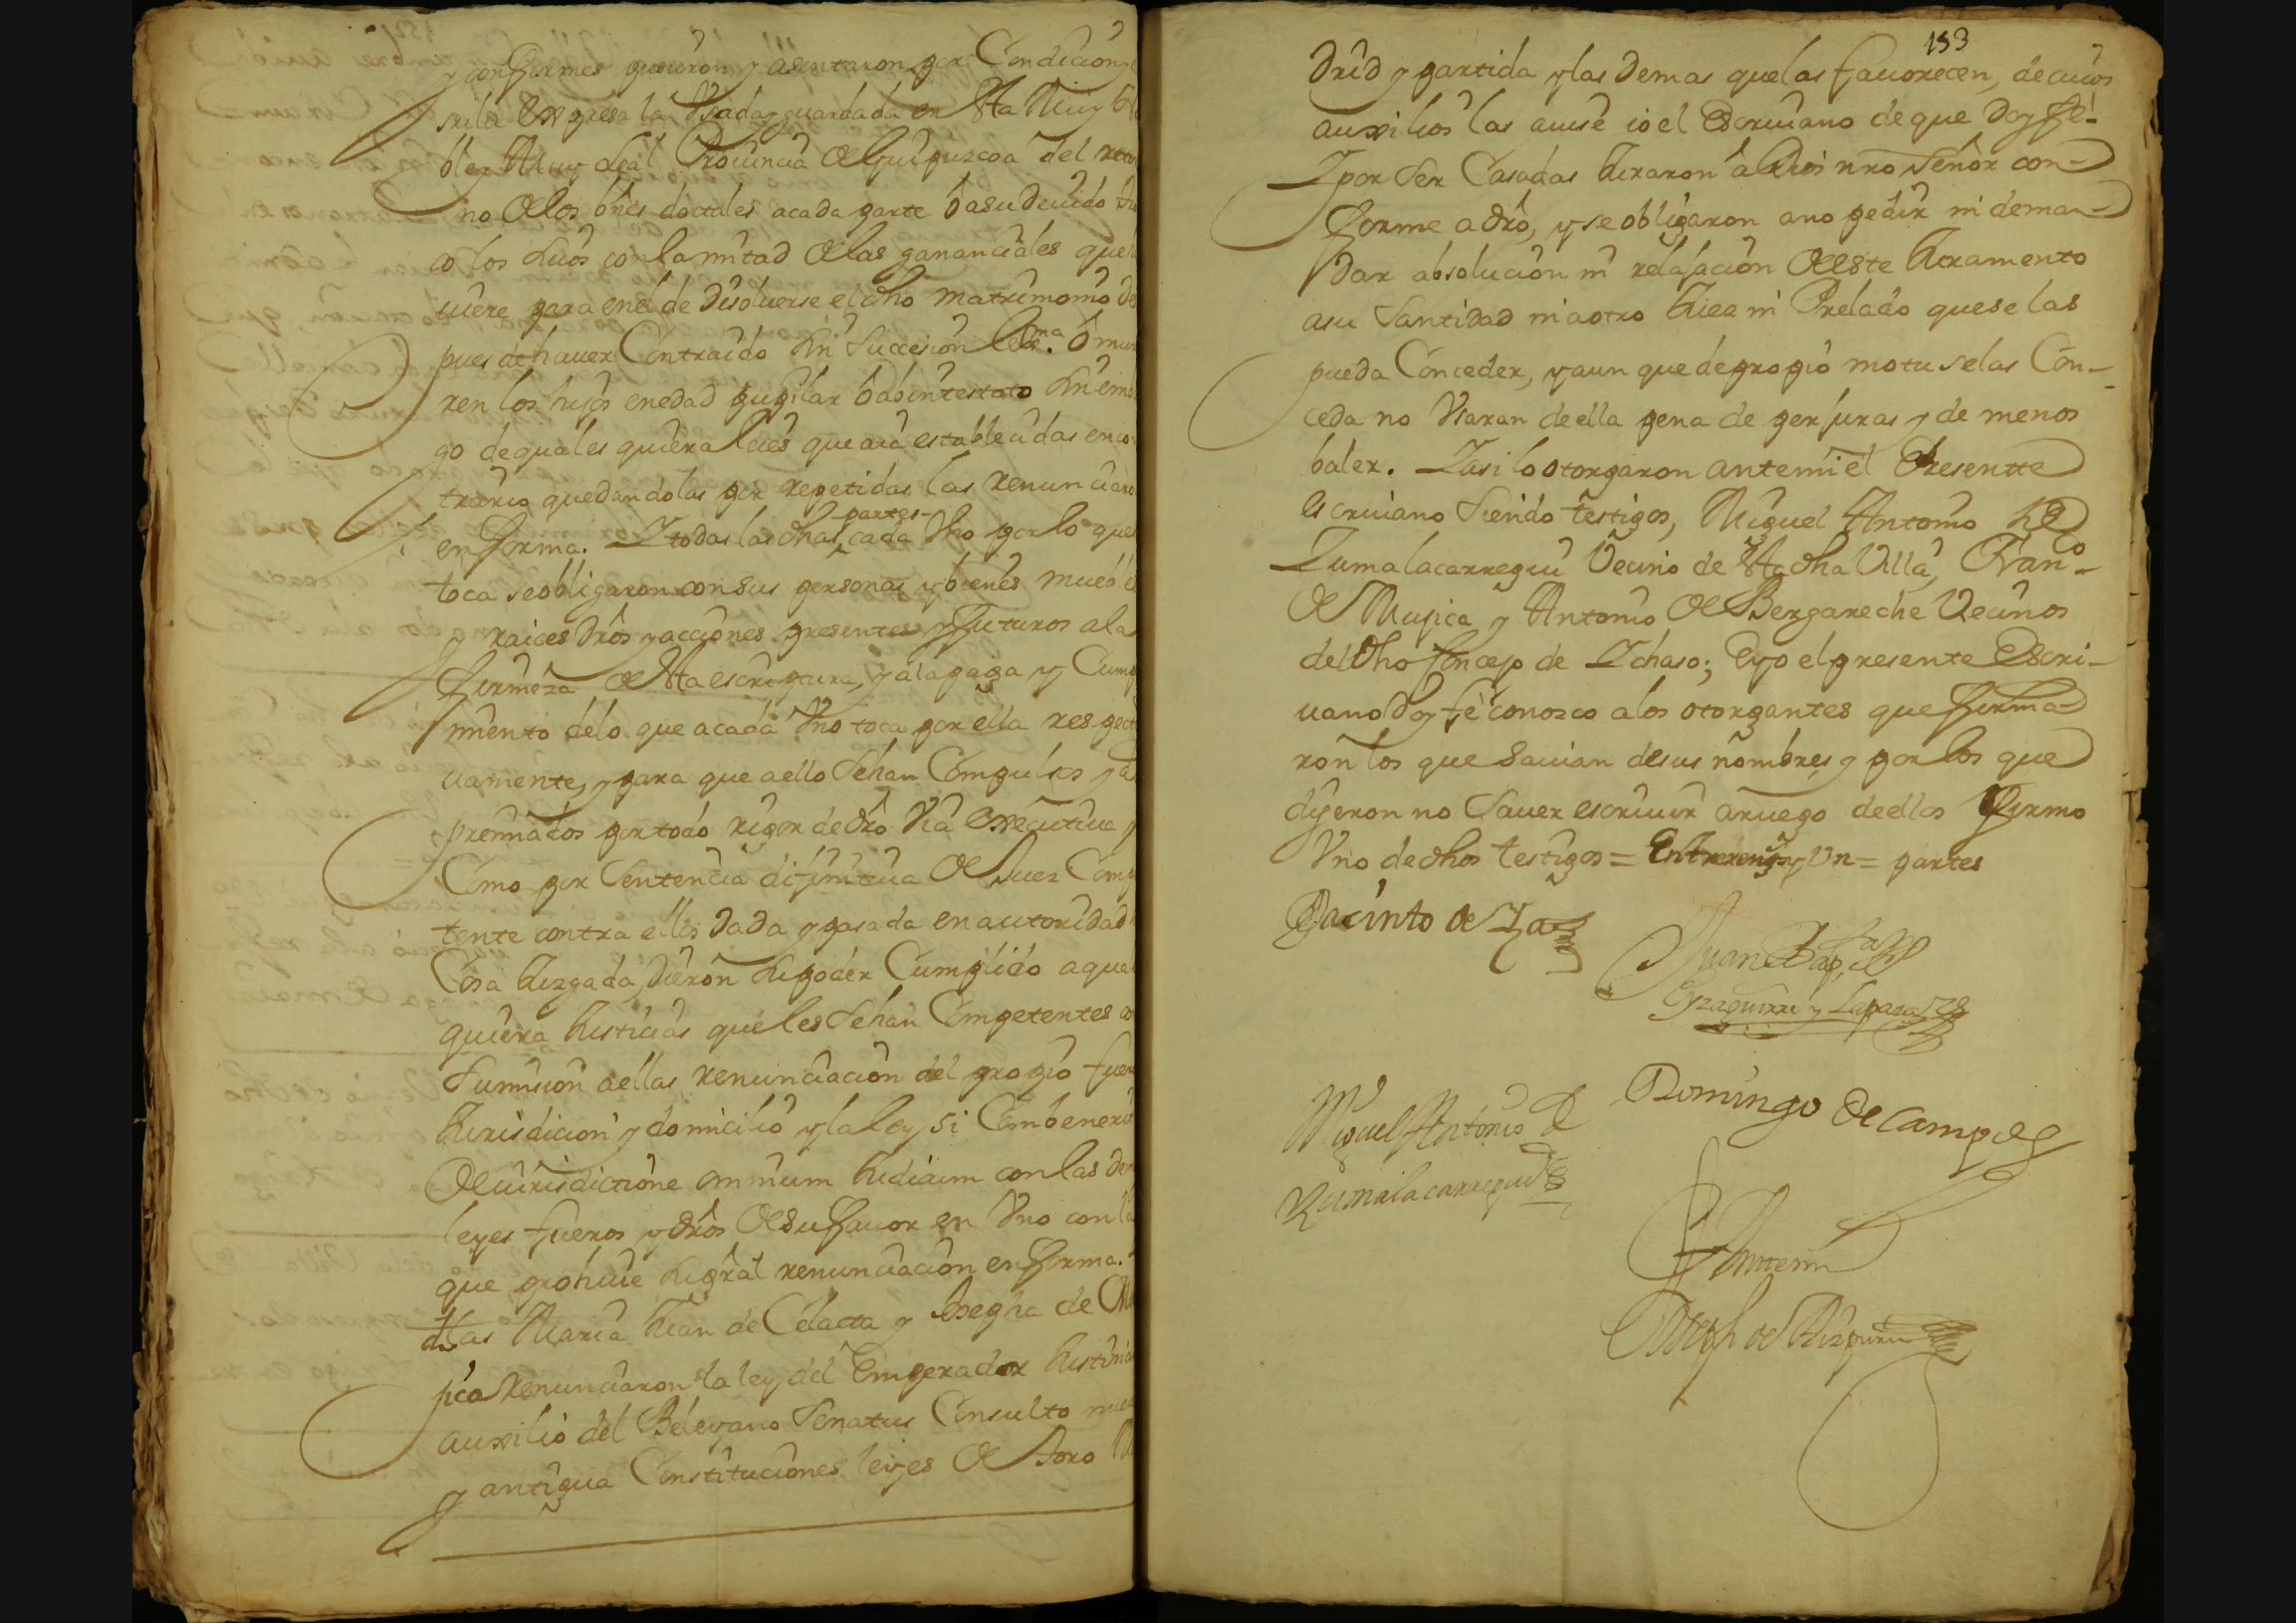 y conformes pusieron y asentaron por Condicion
srila expresa la Usada y guardada en Sta Muy
ble y Muy Leal Provincia de Guipuzcoa del
no de los bnes dotales acada parte ô asu devido
co los suios co la mitad de las gananciales que
uiere para en el de Disolverse el dho matrimonio
pues de haver Contraido sin Succesion ô mu
ren los hijos en edad pupilar ô abintestato sin em
go de quales quiera leies que aia establecidas en co
trario quedandolas por repetidas las renunciaro
en forma. Y todas las dhas partes cada Uno por lo que
toca se obligaron con sus personas y bienes mueble
y raices dros y acciones presentes y futuros ala
firmeza de Sta escriptura, y ala paga y Cump
miento delo que acada Uno toca por ella respecti
uamente, y para que aello sehan Compulsos y a
premiados por todo rigor de dro Via executiua y
Como por Sentencia difinitiua de Juez Comp
tente contra ellos dada y pasada en autoridad
Cosa Juzgada, dieron su poder Cumplido a qual
quiera Justicias que les sehan Competentes co
Sumision aellas renunciacion del propio fuero
Jurisdicion y domicilio y la ley si Combenerit
de iurisdictione omnium Judicum con las de
leyes fueros y dros de su fauor en Uno con la
que prohiue su gral renunciacion en forma.
dhas Maria Juan de Celaeta y Josepha de Mu
jica Renunciaron la ley del Emperador Justinia
auxilio del Beleyano Senatus Consulto nueua
y antigua Constituciones leyes de Toro Ma
153
drid y partida y las demas que las fauorecen, de cuios
auxilios las auise io el Escriuano de que doy fe.
Y por ser Casadas Juraron â Dios nro Señor con
forme a dro, y se obligaron ano pedir ni deman
dar absolucion ni relajacion de este Juramento
asu Santidad ni aotro Juez ni Prelado que se las
pueda Conceder, y aun que de propio motu se las Con-
ceda no Usaran de ella pena de perjuras y de menos
baler. Y asi lo otorgaron ante mi el Presentte
escriuano siendo testigos, Miguel Antonio de
Zumalacarregui Vecino de Sta dha Villa, Franco
de Mujica y Antonio de Bergareche Vecinos
del dho Concejo de Ichaso; E yo el presente Escri-
uano doy fe conosco alos otorgantes que firma
ron los que sauian de sus nombres y por los que
dijeron no sauer escriuir aruego de ellos firmo
Uno de dhos testigos = Entrerenglon = partes
Jacinto de
Juan Bapta de
Eyzaguirre y Laparaza
Miguel Antonio de
Zumalacarregui
Domingo de Campos
Ante mi
Joseph de Aizpuru